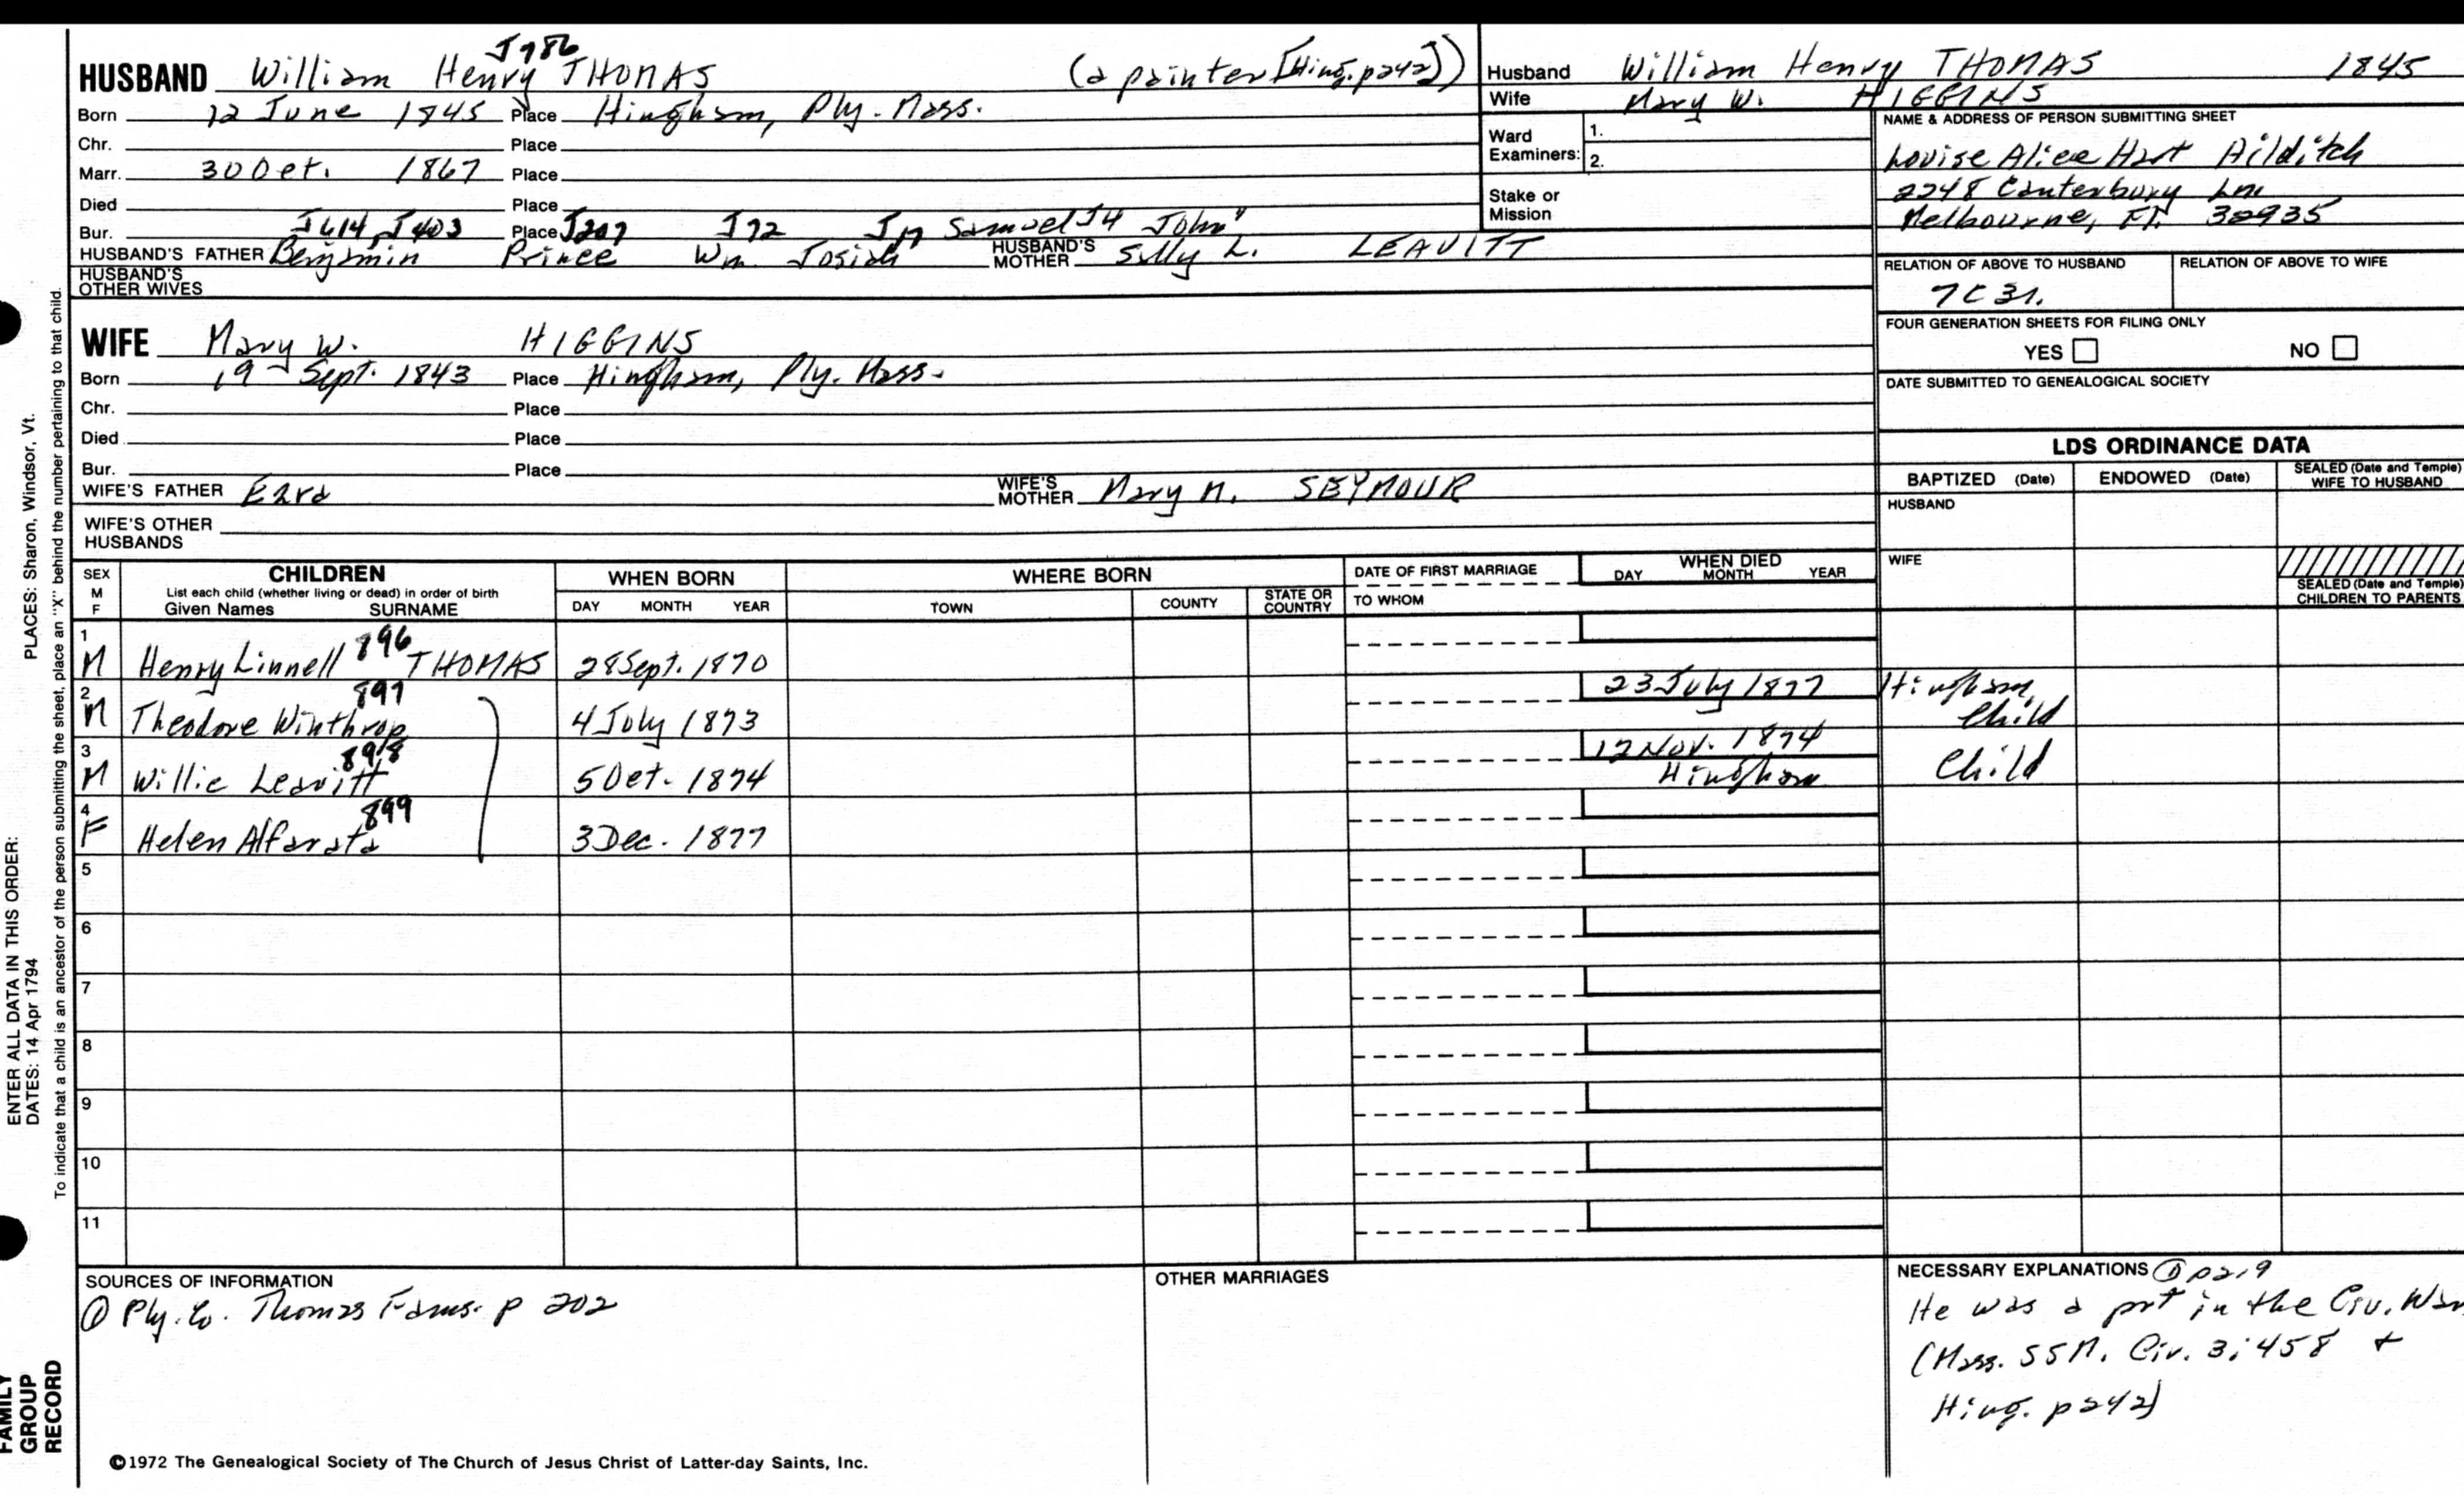 J786
HUSBAND William Henry THOMAS (a painter [Hing. p242])
Born 12 June 1845 Place Hingham, Ply. Mass.
Chr. Place
Marr. 30 Oct. 1867 Place
Died Place
Bur. J614 J403 Place J207 J72 J17 Samuel J4 John
HUSBAND'S FATHER Benjamin Prince Wm Josiah HUSBAND'S MOTHER Sally L. LEAVITT
HUSBAND'S OTHER WIVES
WIFE Mary W. HIGGINS
Born 19 Sept. 1843 Place Hingham, Ply. Mass.
Chr. Place
Died Place
Bur. Place
WIFE'S FATHER Ezra WIFE'S MOTHER Mary M. SEYMOUR
WIFE'S OTHER HUSBANDS
Husband William Henry THOMAS 1845
Wife Mary W. HIGGINS
Ward Examiners: 1.
2.
Stake or Mission
NAME & ADDRESS OF PERSON SUBMITTING SHEET
Louise Alice Hart Hilditch
2248 Canterbury Ln
Melbourne, Fl. 32935
RELATION OF ABOVE TO HUSBAND RELATION OF ABOVE TO WIFE
7C3r.
FOUR GENERATION SHEETS FOR FILING ONLY
YES NO
DATE SUBMITTED TO GENEALOGICAL SOCIETY
LDS ORDINANCE DATA
BAPTIZED (Date) ENDOWED (Date) SEALED (Date and Temple) WIFE TO HUSBAND
HUSBAND
WIFE
SEALED (Date and Temple) CHILDREN TO PARENTS
SEX M F
CHILDREN
List each child (whether living or dead) in order of birth
Given Names SURNAME
WHEN BORN
DAY MONTH YEAR
WHERE BORN
TOWN COUNTY STATE OR COUNTRY
DATE OF FIRST MARRIAGE
TO WHOM
WHEN DIED
DAY MONTH YEAR
1 M Henry Linnell 896 THOMAS 28 Sept. 1870
2 M Theodore Winthrop 897 4 July 1873 23 July 1877 Hingham Child
3 M Willie Leavitt 898 5 Oct. 1874 17 Nov. 1874 Hingham Child
4 F Helen Alfarata 899 3 Dec. 1877
5
6
7
8
9
10
11
SOURCES OF INFORMATION
① Ply. Co. Thomas Fams. p 202
OTHER MARRIAGES
NECESSARY EXPLANATIONS ① p219
He was a prt in the Civ. War
(Mass. SSM. Civ. 3:458 +
Hing. p242)
©1972 The Genealogical Society of The Church of Jesus Christ of Latter-day Saints, Inc.
FAMILY GROUP RECORD
ENTER ALL DATA IN THIS ORDER:
DATES: 14 Apr 1794
PLACES: Sharon, Windsor, Vt.
To indicate that a child is an ancestor of the person submitting the sheet, place an "X" behind the number pertaining to that child.